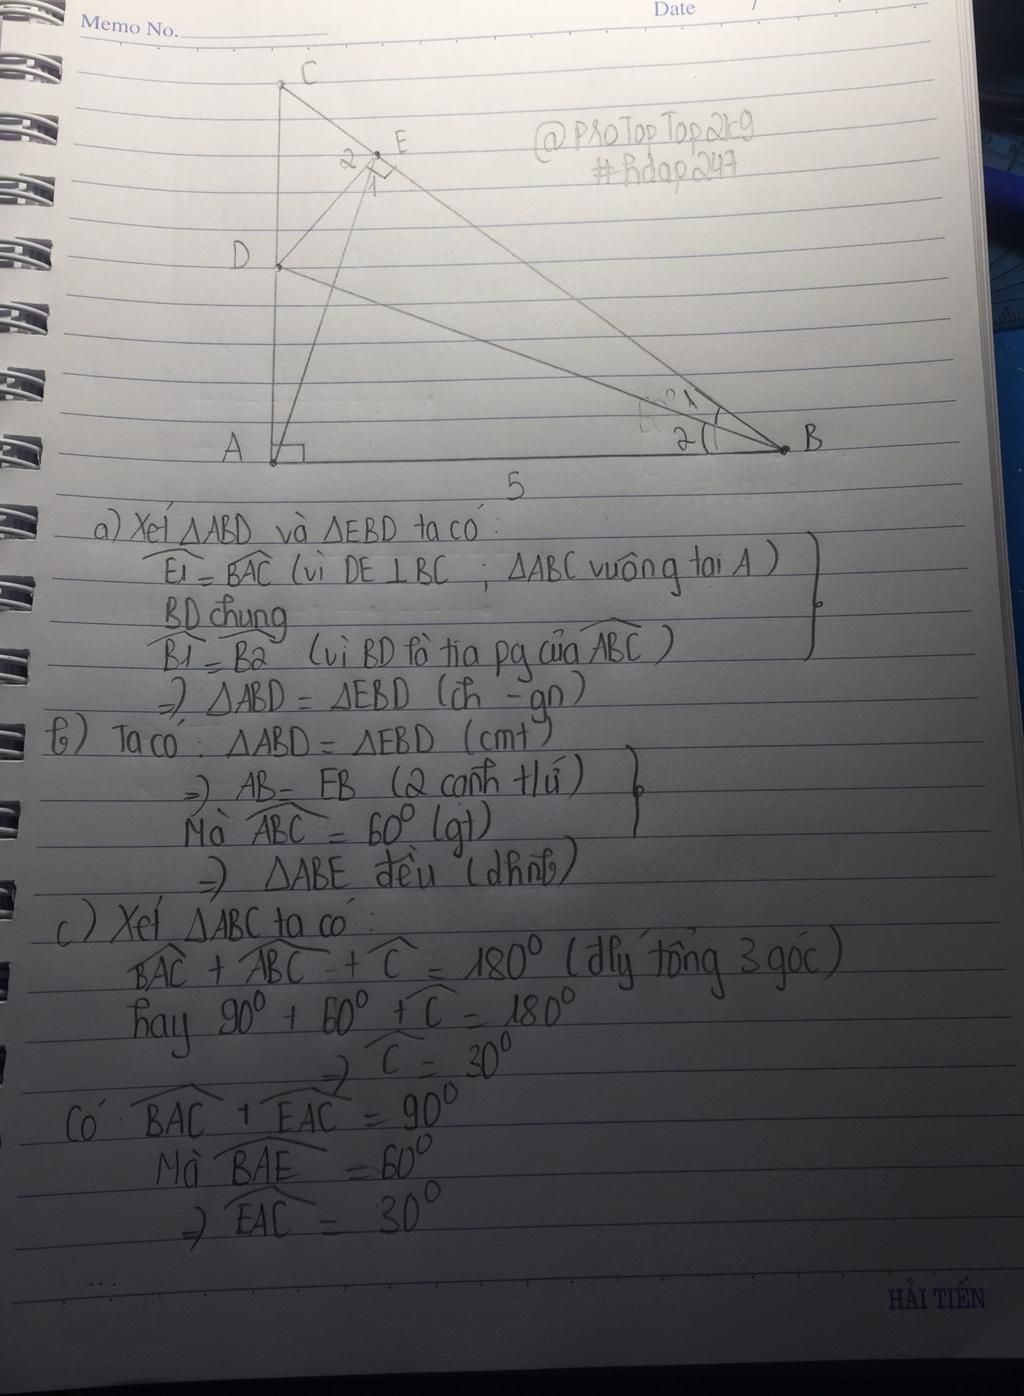 Memo No.
Date /
C
E
@PROTopTop2k9
#hdap247
2
1
D
1
2
A
B
5
a) Xét ΔABD và ΔEBD ta có:
Ê1 = BAC (vì DE ⊥ BC ; ΔABC vuông tại A)
BD chung
B1 = B2 (vì BD là tia pg của ABC)
=> ΔABD = ΔEBD (ch - gn)
b) Ta có: ΔABD = ΔEBD (cmt)
=> AB = EB (2 cạnh t/ứ)
Mà ABC = 60° (gt)
=> ΔABE đều (dhnb)
c) Xét ΔABC ta có:
BAC + ABC + C = 180° (đlý tổng 3 góc)
hay 90° + 60° + C = 180°
=> C = 30°
Có: BAC + EAC = 90°
Mà BAE = 60°
=> EAC = 30°
...
HẢI TIẾN